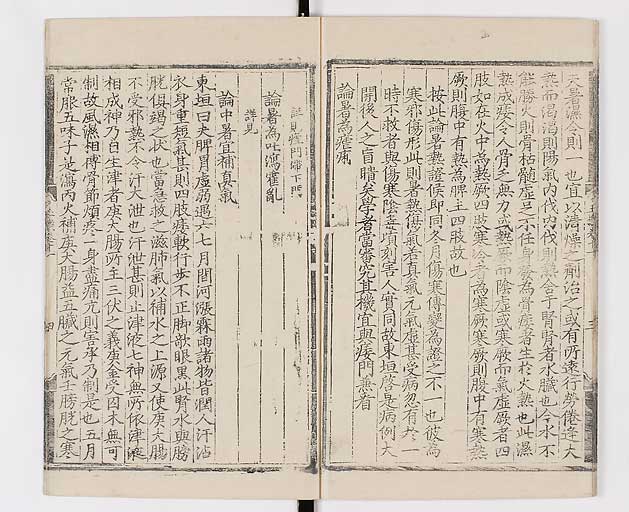 夫暑濕令則一也宜以淸燥之劑治之或有所遠行勞倦逢大
熱而渴渴則陽氣內伐內伐則熱舍于腎腎者水臟也今水不
能勝火則骨枯髓虛足不任身發為骨痿者生於火熱也此濕
熱成痿令人骨乏無力或熱厥而陰虛或寒厥而氣虛厥者四
肢如在火中為熱厥四肢寒冷者為寒厥寒厥則腹中有寒熱
厥則腹中有熱為脾主四肢故也
按此論暑熱證候即同冬月傷寒傳變為證之不一也彼為
寒邪傷形此則暑熱傷氣若真氣元氣虛甚受病忽有於一
時不救者與傷寒陰毒頃刻害人實同故東垣啓是病例大
開後人之盲瞶矣學者當審究其機宜與痿門兼看
論暑為瘧痢
詳見瘧門痢下門
論暑為吐瀉霍亂
詳見
論中暑宜補真氣
東垣曰夫脾胃虛弱遇六七月間河漲霖雨諸物皆潤人汗沾
衣身重短氣甚則四肢痿軟行步不正脚欹眼黑此腎水與膀
胱俱竭之狀也當急救之滋肺氣以補水之上源又使庚大腸
不受邪熱不令汗大泄也汗泄甚則止津液七神無所依津液
相成神乃自生津者庚大腸所主三伏之義庚金受囚木無可
制故風濕相搏骨節煩疼一身盡痛亢則害承乃制是也五月
常服五味子是瀉丙火補庚大腸益五臟之元氣壬膀胱之寒